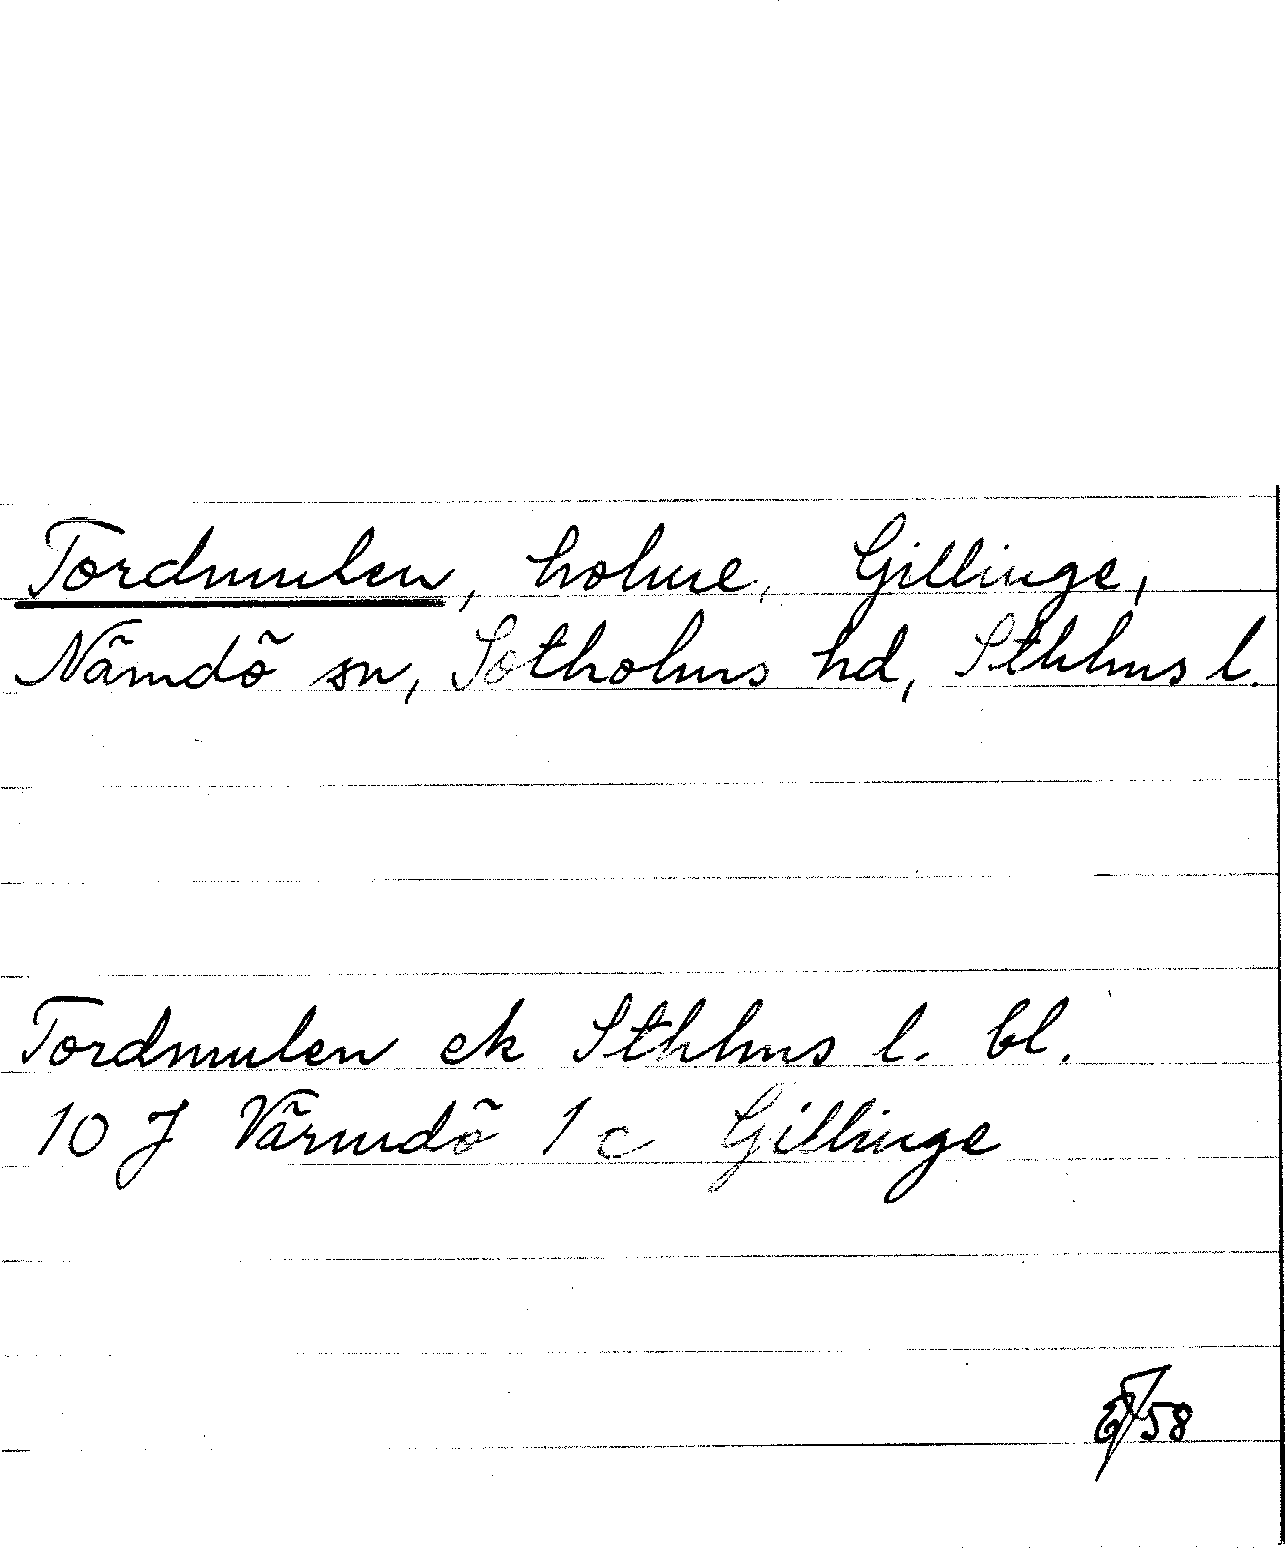 Tordmulen, holme, Gillinge,
Nämdö sn, Sotholms hd, Sthlms l.
Tordmulen ek Sthlms l. bl.
10 J Värmdö 1 c Gillinge
58